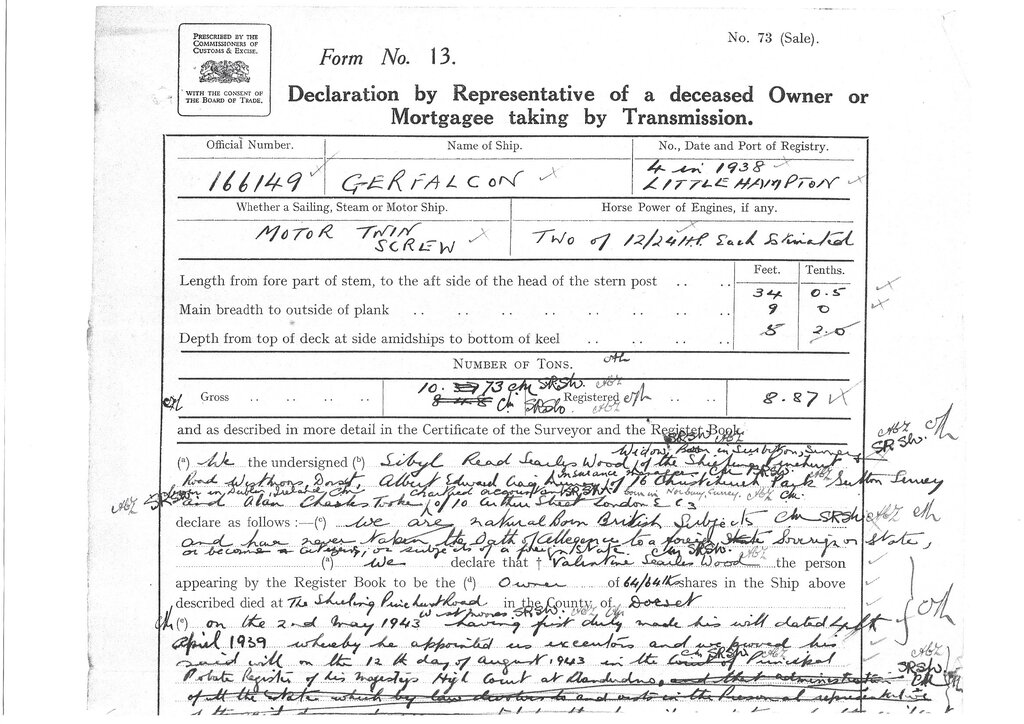 PRESCRIBED BY THE
COMMISSIONERS OF
CUSTOMS & EXCISE.
WITH THE CONSENT OF
THE BOARD OF TRADE.
No. 73 (Sale).
Form No. 13.
Declaration by Representative of a deceased Owner or
Mortgagee taking by Transmission.
Official Number. Name of Ship. No., Date and Port of Registry.
166149 GERFALCON 4 in 1938
LITTLEHAMPTON
Whether a Sailing, Steam or Motor Ship. Horse Power of Engines, if any.
MOTOR TWIN
SCREW
Two of 12/24 H.P. Each Estimated
Feet. Tenths.
Length from fore part of stem, to the aft side of the head of the stern post .. .. 34 0.5
Main breadth to outside of plank .. .. .. .. .. .. .. 9 0
Depth from top of deck at side amidships to bottom of keel .. .. .. .. 5 2.0
NUMBER OF TONS.
Gross .. .. .. .. 10. 73 Registered 8.87
and as described in more detail in the Certificate of the Surveyor and the Register Book.
(a) We the undersigned (b) Sibyl Read Searles Wood Widow of
Road Westmoors, Dorset, Albert Edward of 16 Christchurch Park Sutton Surrey
born in Dublin, Ireland chartered accountant born in Norbury, Surrey.
and Alan Charles Tooke of 10 Arthur Street London E C 3
declare as follows :—(c) We are natural Born British Subjects
and have never taken the Oath of Allegence to a foreign Sovereign or State,
or become a citizen, or subjects of a foreign State.
(a) We declare that † Valentine Searles Wood the person
appearing by the Register Book to be the (d) Owner of 64/64th shares in the Ship above
described died at The Shieling Pinehurst Road Westmoors in the County of Dorset
(e) on the 2nd May 1943 having first duly made his will dated
April 1939 whereby he appointed us executors and we proved his
said will on the 12th day of August 1943 in the Principal
Probate Register of his Majestys High Court at Llandudno, and that administration
of all the Estate which by law devolves to and vests in the Personal representative